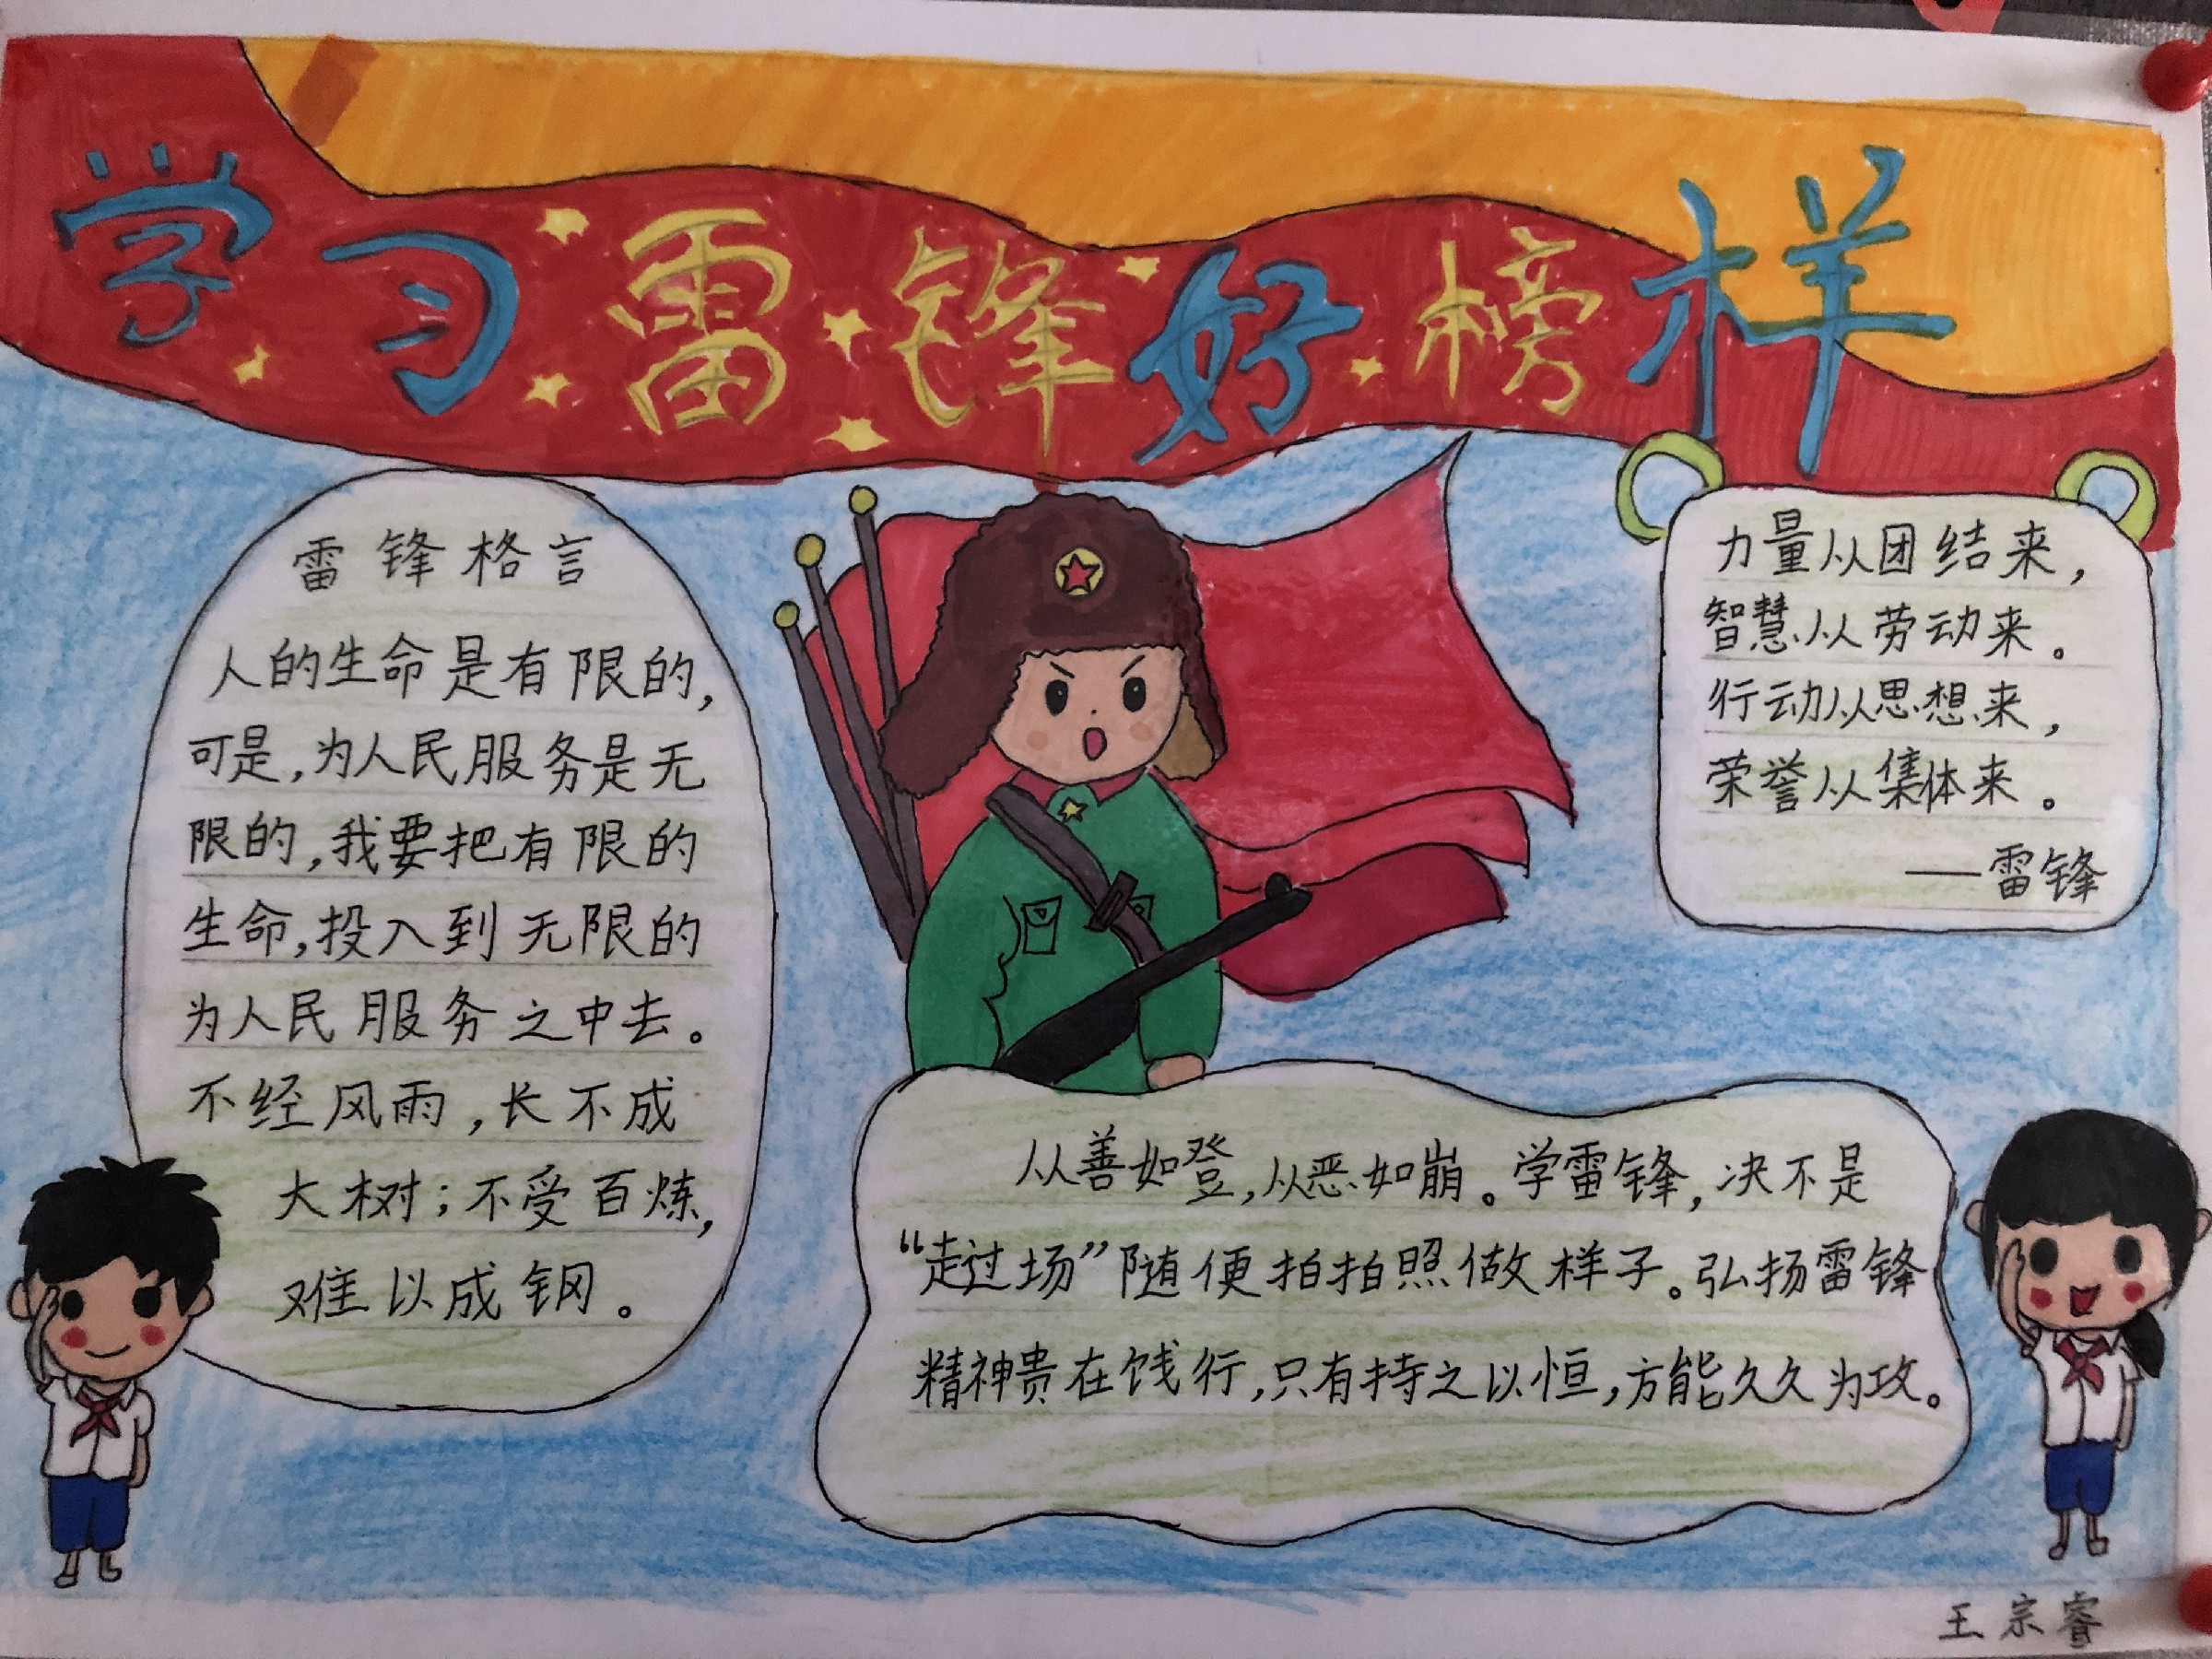 学习雷锋好榜样
雷锋格言
人的生命是有限的,
可是,为人民服务是无
限的,我要把有限的
生命,投入到无限的
为人民服务之中去。
不经风雨,长不成
大树;不受百炼,
难以成钢。
力量从团结来,
智慧从劳动来。
行动从思想来,
荣誉从集体来。
——雷锋
从善如登,从恶如崩。学雷锋,决不是
“走过场”随便拍拍照做样子。弘扬雷锋
精神贵在饯行,只有持之以恒,方能久久为攻。
王宗睿